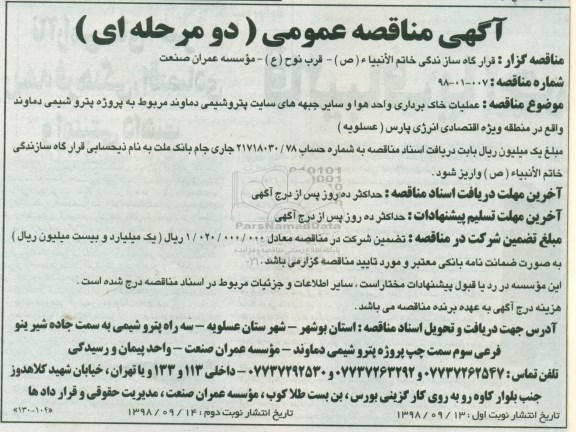 آگهی مناقصه عمومی ( دو مرحله ای )
مناقصه گزار : قرار گاه سازندگی خاتم الأنبیاء ( ص ) - قرب نوح ( ع ) - مؤسسه عمران صنعت
شماره مناقصه : ۰۰۷-۰۱-۹۸
موضوع مناقصه : عملیات خاک برداری واحد هوا و سایر جبهه های سایت پتروشیمی دماوند مربوط به پروژه پترو شیمی دماوند
واقع در منطقه ویژه اقتصادی انرژی پارس ( عسلویه )
مبلغ یک میلیون ریال بابت دریافت اسناد مناقصه به شماره حساب ۲۱۷۱۸۰۳۰/۷۸ جاری جام بانک ملت به نام ذیحسابی قرار گاه سازندگی
خاتم الأنبیاء ( ص ) واریز شود .
آخرین مهلت دریافت اسناد مناقصه : حداکثر ده روز پس از درج آگهی
آخرین مهلت تسلیم پیشنهادات : حداکثر ده روز پس از درج آگهی
مبلغ تضمین شرکت در مناقصه : تضمین شرکت در مناقصه معادل ۱/۰۲۰/۰۰۰/۰۰۰ ریال ( یک میلیارد و بیست میلیون ریال )
به صورت ضمانت نامه بانکی معتبر و مورد تایید مناقصه گزار می باشد .
این مؤسسه در رد یا قبول پیشنهادات مختار است ، سایر اطلاعات و جزئیات مربوط در اسناد مناقصه درج شده است .
هزینه درج آگهی به عهده برنده مناقصه می باشد .
آدرس جهت دریافت و تحویل اسناد مناقصه : استان بوشهر - شهرستان عسلویه - سه راه پتروشیمی به سمت جاده شیرینو
فرعی سوم سمت چپ پروژه پتروشیمی دماوند - مؤسسه عمران صنعت - واحد پیمان و رسیدگی
تلفن تماس : ۰۷۷۳۷۲۶۲۵۴۷ و ۰۷۷۳۷۲۶۳۲۹۲ و ۰۷۷۳۷۲۹۲۵۳۰ - داخلی ۱۱۳ و ۱۳۳ و یا تهران ، خیابان شهید کلاهدوز
جنب بلوار کاوه رو به روی کار گزینی بورس ، بن بست طلا کوب ، مؤسسه عمران صنعت ، مدیریت حقوقی و قرار داد ها
تاریخ انتشار نوبت اول : ۱۳۹۸/۰۹/۱۳ تاریخ انتشار نوبت دوم : ۱۳۹۸/۰۹/۱۴ «۱۳۰-۱۰۴»
ParsNamadData